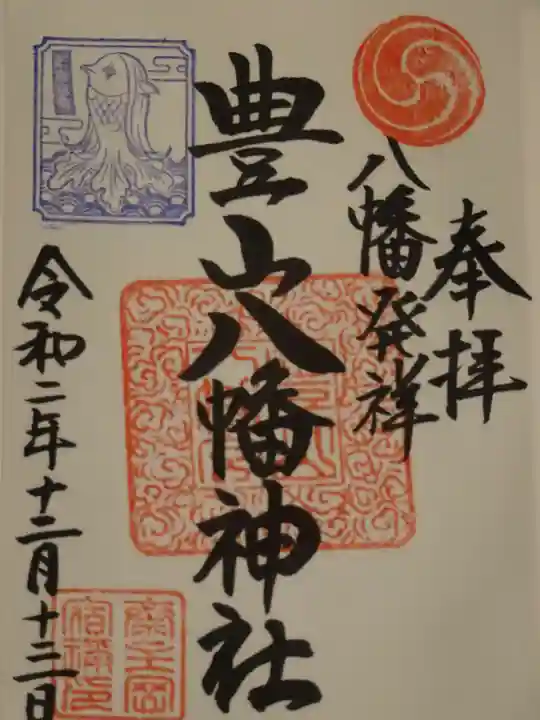 奉拝
八幡発祥
豊山八幡神社
令和二年十二月十三日